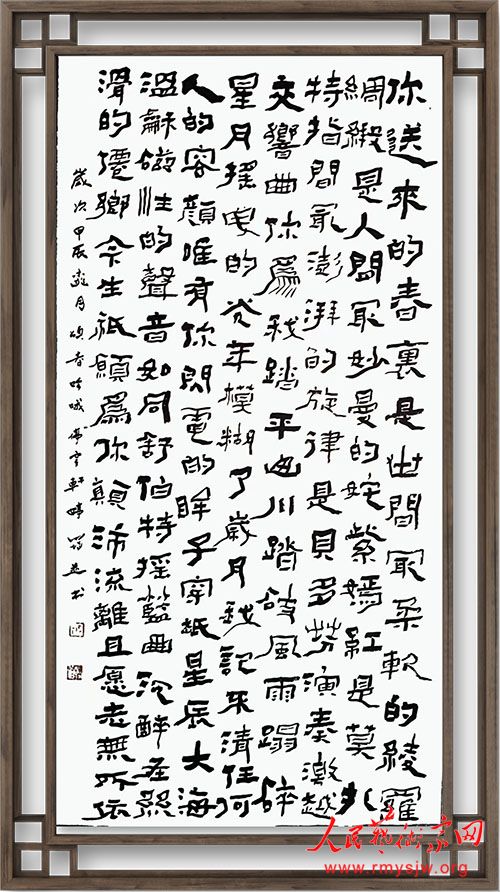 你送來的春裏是世間冣柔軟的綾羅
綢緞是人間冣妙曼的姹紫嫣紅是莫扎
特指間冣澎湃的旋律是貝多芬演奏激越
交響曲你爲我踏平山川踏破風雨蹋碎
星月摇曳的光年模糊了歲月我記不清任何
人的容顏唯有你閃電的眸子穿星辰大海
溫龢磁性的聲音如同舒伯特摇籃曲沉醉在
滑的鄉余生祇願爲你顛沛流離且愿老無所依
歲次甲辰月頌春吟軒並书
人民藝術家网
www.rmysjw.org